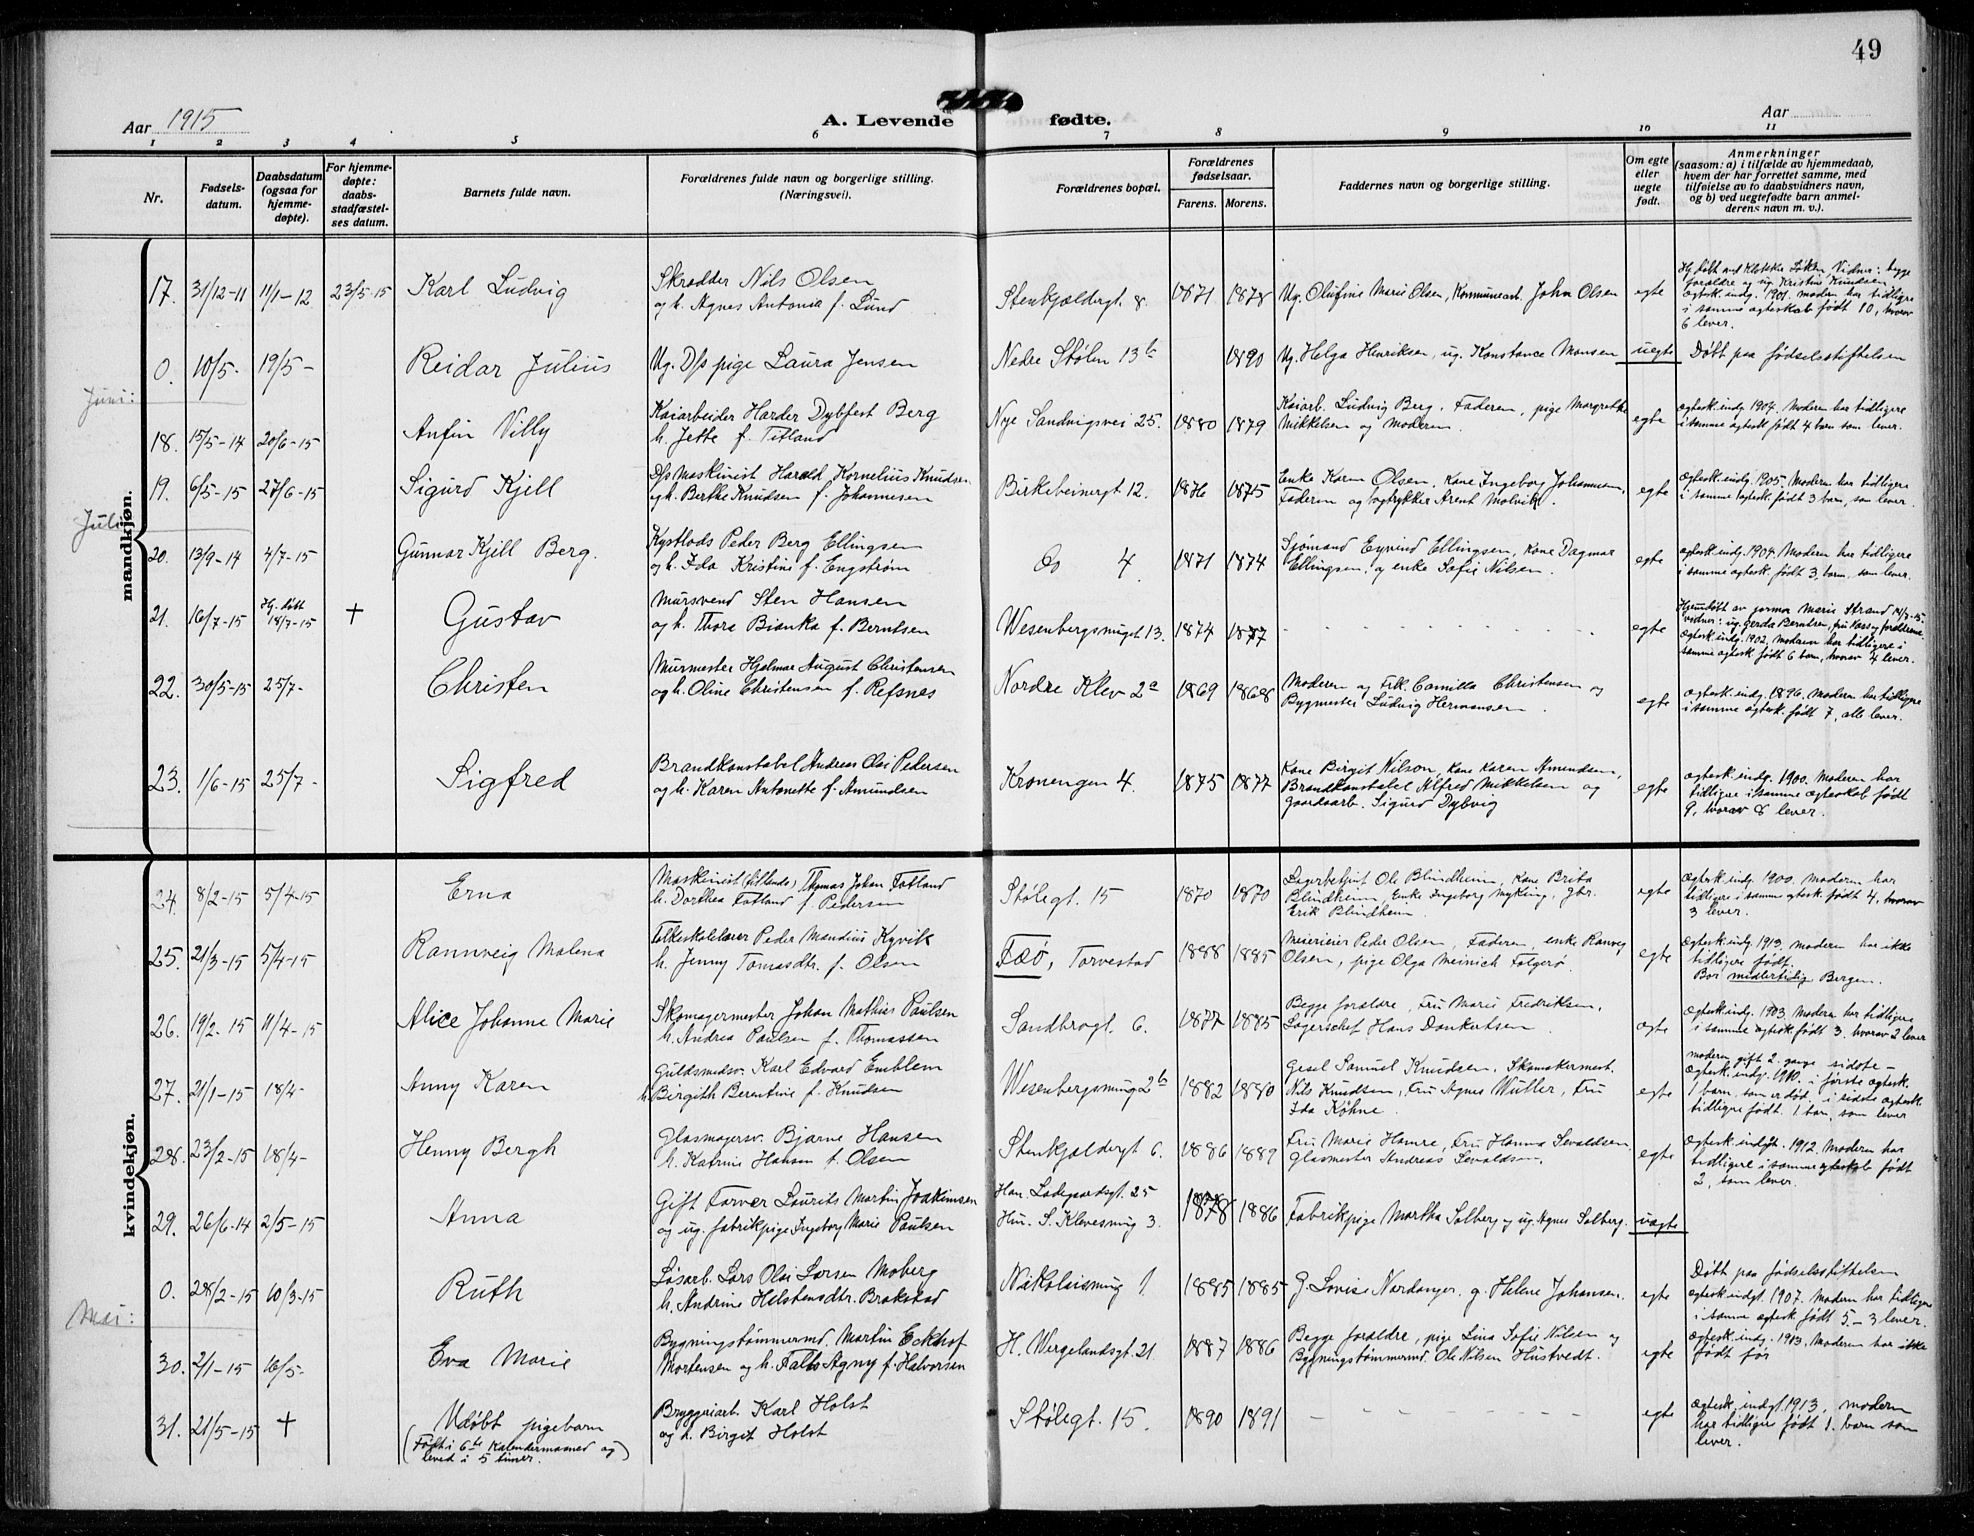 49
Aar 1915
A. Levende fødte.
Aar
1 2 3 4 5 6 7 8 9 10 11
Nr.
Fødsels-
datum.
Daabsdatum
(ogsaa for
hjemme-
døpte).
For hjemme-
døpte:
daabs-
stadfæstel-
ses datum.
Barnets fulde navn.
Forældrenes fulde navn og borgerlige stilling.
(Næringsvei).
Forældrenes bopæl.
Forældrenes
fødselsaar.
Farens. Morens.
Faddernes navn og borgerlige stilling.
Om egte
eller
uegte
født.
Anmerkninger
(saasom: a) i tilfælde av hjemmedaab,
hvem der har forrettet samme, med
tilføielse av to daabsvidners navn,
og b) ved uegtefødte barn anmel-
derens navn m. v.).
mandkjøn.
17. 31/12-11 11/1-12 23/5-15 Karl Ludvig
Skrædder Nils Olsen
og h. Agnes Antonia f. Lund
Stenkjældergt. 8. 1871 1878
Ug. Olufine Marie Olsen, Kommunearb. John Olsen
egte
Hj. døbt ved Vidner: begge
forældre og ug. Kristine Knudsen
Ægtesk. indg. 1901. Modern har tidligere
i samme ægteskab født 10, hvorav
6 lever.
0. 10/5- 19/5- Reidar Julius
Ug. D/s pige Laura Jensen
Nedre Stølen 13b 1890
Ug. Helga Henriksen, ug. Konstance Monsen
uegte
Døbt paa fødselsstiftelsen
Juni:
18. 15/5-14 20/6-15 Anfin Villy
Kaiarbeider Harder Dybfest Berg
h. Jette f. Titland
Nye Sandvigsvei 25. 1880 1879
Kaiarb. Ludvig Berg. Faderen, pige Margrethe
Mikkelsen og moderen.
egte
Ægtesk. indg. 1904. Moderen har tidligere
i samme ægtesk. født 4 barn som lever.
19. 6/5-15 27/6-15 Sigurd Kjell
D/s Maskinist Harald Kornelius Knudsen
og h. Berthe Knudsen f. Johannesen
Birkebeinergt 12. 1876 1875
Enke Karen Olsen, Kone Ingeborg Johannesen,
Faderen og bogtrykker Arent Molvik.
egte
Ægtesk. indg. 1905. Moderen har tidligere
i samme ægtesk. født 3 barn, som lever.
Juli
20. 13/9-14 4/7-15 Gunnar Kjell Berg.
Kystlods Peder Berg Ellingsen
og h. Ida Kristine f. Engstrøm
Do 4 1871 1874
Sjømand Eyvind Ellingsen, Kone Dagmar
Ellingsen, og enke Sofie Nilsen.
egte
Ægtesk. indg. 1904. Modern har tidligere
i samme ægtesk. født 3 barn, som lever.
21. 16/7-15 Hj. døbt
18/7-15 + Gustav
Mursvend Sten Hansen
og h. Thora Bianka f. Berntsen
Wesenbergsmuget 13. 1874 1877
- - - - - - - - -
egte
Hjemdøbt av jormor Marie Strand
vidner: ug. Gerda Berntsen,
Ægtesk. indg. 1902, moderen har tidligere i
samme ægtesk. født 6 barn, hvorav 4 lever.
22. 30/5-15 25/7- Christen
Murmester Hjalmar August Christensen
og h. Oline Christensen f. Refsnes
Nordre Klev 2a 1869 1868
Moderen og Frk. Camilla Christensen og
Bygmester Ludvig Hermansen.
egte
Ægtesk. indg. 1896. Modern har tidligere
i samme ægtesk. født 7, alle lever.
23. 1/6-15 25/7- Sigfred
Brandkonstabel Andreas Olai Pedersen
og h. Karen Antonette f. Amundsen
Kronengen 4. 1875 1877
Kone Birgit Nilson, Kone Karen Amundsen,
Brandkonstabel Alfred Mikkelsen og
gaardsarb. Sigurd Dybvig
egte
Ægtesk. indg. 1900. Moderen har
tidligere i samme ægteskab født
9, hvorav 8 lever.
kvindekjøn.
24. 8/2-15 5/4-15 Erna
Maskinist Thomas Johan Fotland
h. Dorthea Fotland f. Pedersen
Stølegt. 15 1870 1870
Ole Blindheim, Kone Brita
Blindheim, Enke Ingeborg Myking,
Erik Blindheim
egte
Ægtesk. indg. 1900. Moderen har
tidligere i samme ægtesk. født 4, hvorav
3 lever.
25. 21/3-15 5/4-15 Rannveig Malena
Folkeskolelærer Peder Mandius Kyvik
h. Jenny Tomasdtr. f. Olsen
Fæø, Torvestad 1888 1885
Meieriier Peder Olsen, Faderen, enke Ranveig
Olsen, pige Olga Meinich Falgerø.
egte
Ægtesk. indg. 1913. Moderen har ikke
tidligere født.
Bor midlertidig Bergen.
26. 19/2-15 11/4-15 Alice Johanne Marie
Skomagermester Johan Mathias Paulsen
h. Andrea Paulsen f. Thomassen
Sandbrogt. 6. 1877 1885
Begge forældre, Fru Marie Fredriksen,
Lagerschef Hans Dankertsen.
egte
Ægtesk. indg. 1903. Modern har tidligere
i samme ægtesk. født 3. hvorav 2 lever
27. 21/1-15 18/4- Anny Karen
Guldsmedsv. Karl Edvard Emblem
h. Birgith Berentine f. Knudsen
Wesenbergsmug 2b 1882 1880
Gesel Samuel Knudsen, Skomakermest.
Nils Knudsen, Fru Agnes Müller, Fru
Ida Køhne.
egte
Modern gift 2. gange sidste -
Ægtesk. indg. 1910. i første ægtesk.
1 barn, som er død, i sidste ægtesk.
tidligere født 1 barn, som lever
28. 23/2-15 18/4- Henny Bergh
Glasmagersv. Bjarne Hansen
h. Katrine Hansen f. Olsen
Stenkjeldergt 6. 1886 1889
Fru Marie Hamre, Fru Hanna Sevaldsen,
Glasmester Andreas Sevaldsen.
egte
Ægtesk. indgt. 1912. Modern har
tidligere i samme ægteskab født
2, som lever.
29. 26/6-14 2/5-15 Anna
Gift Farver Laurits Martin Joakimsen
og ug. fabrikpige Ingeborg Marie Paulsen
Han. Ladegaardsgt. 25
Hun. S. Klevesmug 3. 1878 1886
Fabrikpige Martha Solberg og ug. Agnes Solberg.
uegte
0. 28/2-15 10/3-15 Ruth
Løsarb. Lars Olai Larsen Moberg
h. Andrine Helstensdtr. Brakstad
Nikolaismug 1 1885 1885
G. Lovise Nordanger, g. Helene Johansen.
egte
Døbt paa fødselsstiftelsen
Ægtesk. indgt. 1907. Modern har tidligere
i samme ægtesk født 5 - 3 lever.
Mai:
30. 2/1-15 16/5- Eva Marie
Bygningstømmermd. Martin Eckhof
Mortensen og h. Falbo Agny f. Halvorsen
H. Wergelandsgt. 21. 1887 1886
Begge forældre, pige Lina Sofie Nilsen og
Bygningstømmermd. Ole Nilsen Hustvedt.
egte
Ægtesk. indg. 1913. Moderen har ikke
født før
31. 21/5-15 + Udøbt pigebarn
(Født i 6te Kalendermaaned og
leved i 5 timer.)
Bryggeriarb. Karl Holst
og h. Birgit Holst
Stølegt. 15. 1890 1891
- - - - - - -
egte
Ægtesk. indgt. 1913, modern
har tidligere født 1. barn som
lever.